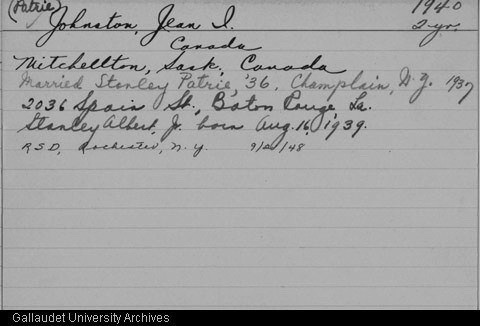 (Patrie) 1940
Johnston, Jean I. 2-yr.
Canada
Mitchellton, Sask, Canada
Married Stanley Patrie, '36, Champlain, N.Y. 1937
2036 Spain St., Baton Rouge, La.
Stanley Albert, Jr. born Aug. 16, 1939.
R.S.D, Rochester, N.Y.
Gallaudet University Archives